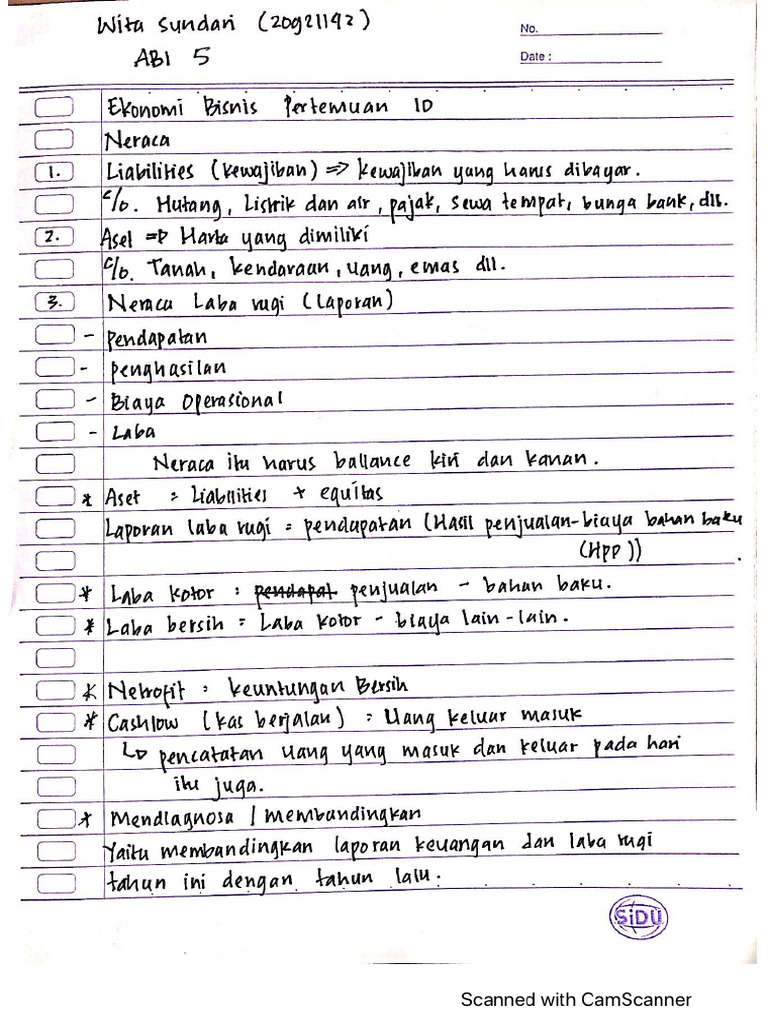 Wita Sundari (20921192)
ABI 5
No.
Date :
Ekonomi Bisnis Pertemuan 10
Neraca
1. Liabilities (kewajiban) => kewajiban yang harus dibayar.
c/o. Hutang, Listrik dan air, pajak, sewa tempat, bunga bank, dll.
2. Aset => Harta yang dimiliki
c/o. Tanah, kendaraan, uang, emas dll.
3. Neraca Laba rugi (Laporan)
- pendapatan
- penghasilan
- Biaya Operasional
- Laba
Neraca itu harus ballance kiri dan kanan.
* Aset = Liabilities + equitas
Laporan laba rugi = pendapatan (Hasil penjualan-biaya bahan baku
(Hpp)).
* Laba kotor : pendapat penjualan - bahan baku.
* Laba bersih = Laba kotor - biaya lain-lain.
* Netrofit : keuntungan Bersih
* Cashlow (kas berjalan) : Uang keluar masuk
↳ pencatatan uang yang masuk dan keluar pada hari
itu juga.
* Mendiagnosa / membandingkan
Yaitu membandingkan laporan keuangan dan laba rugi
tahun ini dengan tahun lalu.
SiDU
Scanned with CamScanner